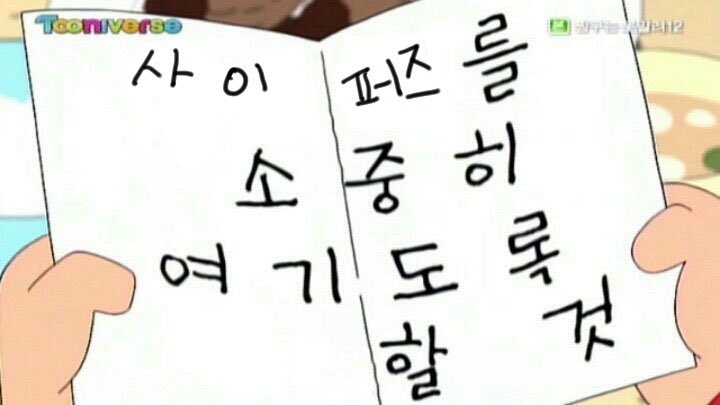 Tooniverse
본 짱구는 못말려12
사이퍼즈를
소중히
여기도록
할것